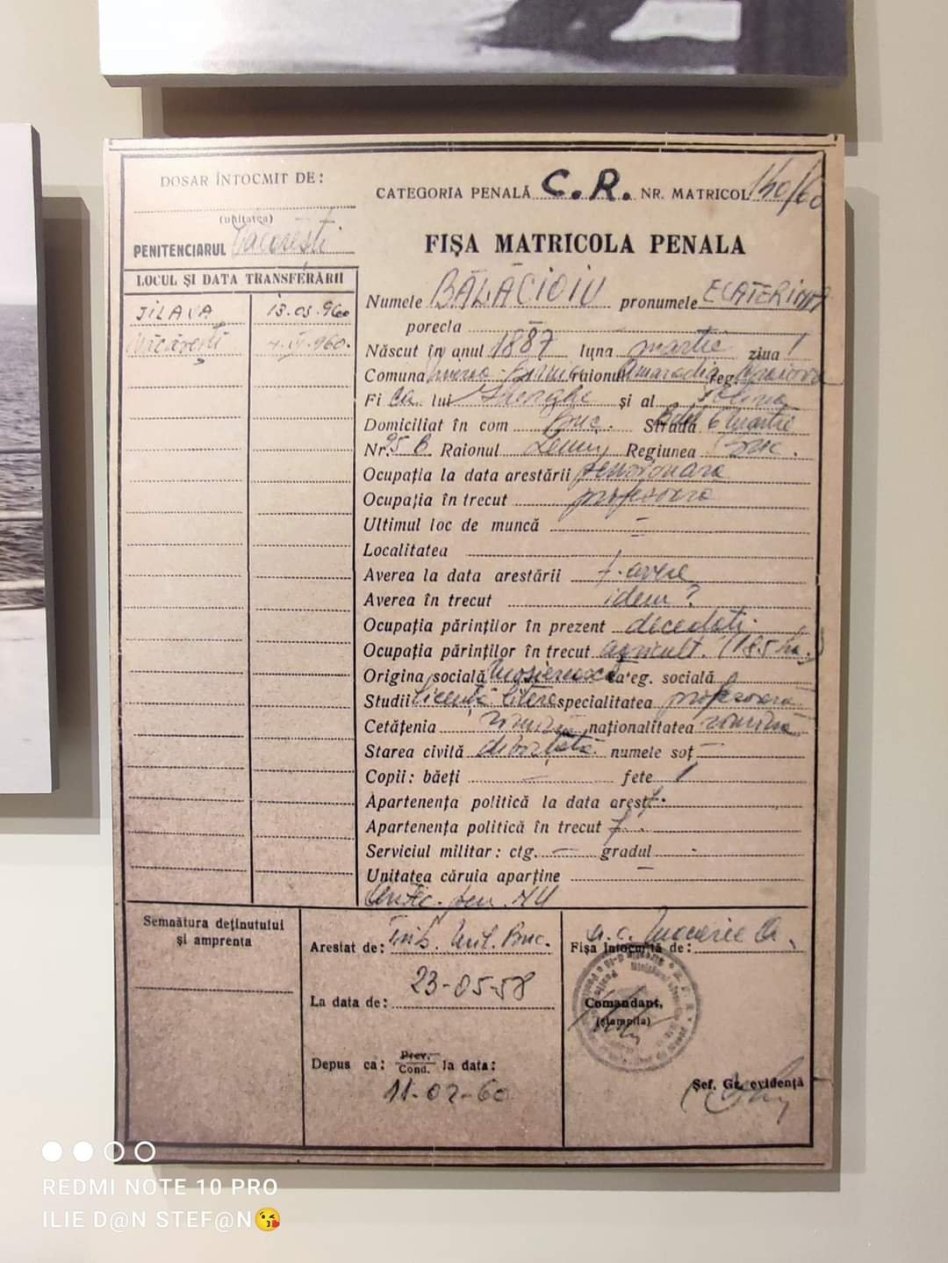 DOSAR ÎNTOCMIT DE:
(unitatea)
PENITENCIARUL Văcărești
LOCUL ȘI DATA TRANSFERĂRII
JILAVA 13.03.960
Văcărești 960.
CATEGORIA PENALĂ C.R. NR. MATRICOL 140/60
FIȘA MATRICOLA PENALA
Numele BĂLĂCIOIU pronumele ECATERINA
porecla
Născut în anul 1887 luna martie ziua 1
Comuna raionul Amaradia reg. Craiova
Fi ca lui Gherghe și al
Domiciliat în com Buc. Strada Bdul 6 Martie
Nr. 95 B. Raionul Lenin Regiunea Buc.
Ocupația la data arestării pensionara
Ocupația în trecut profesoara
Ultimul loc de muncă —
Localitatea
Averea la data arestării f. avere
Averea în trecut idem ?
Ocupația părinților în prezent decedati.
Ocupația părinților în trecut agricult. (185 ha.)
Origina socială Moșierească categ. socială
Studii licență litere specialitatea profesoară
Cetățenia romînă naționalitatea romînă
Starea civilă divorțată numele soț —
Copii: băeți — fete 1
Apartenența politică la data arest f.
Apartenența politică în trecut f.
Serviciul militar: ctg. — gradul -
Unitatea căruia aparține —
Semnătura deținutului
și amprenta
Arestat de: Trib. Mil. Buc.
La data de: 23-05-58
Depus ca: Prev. Cond. la data:
11-02-60
Fișa întocmită de:
Comandant,
(ștampila)
Șef. Gr. evidență
REDMI NOTE 10 PRO
ILIE D@N STEF@N😘